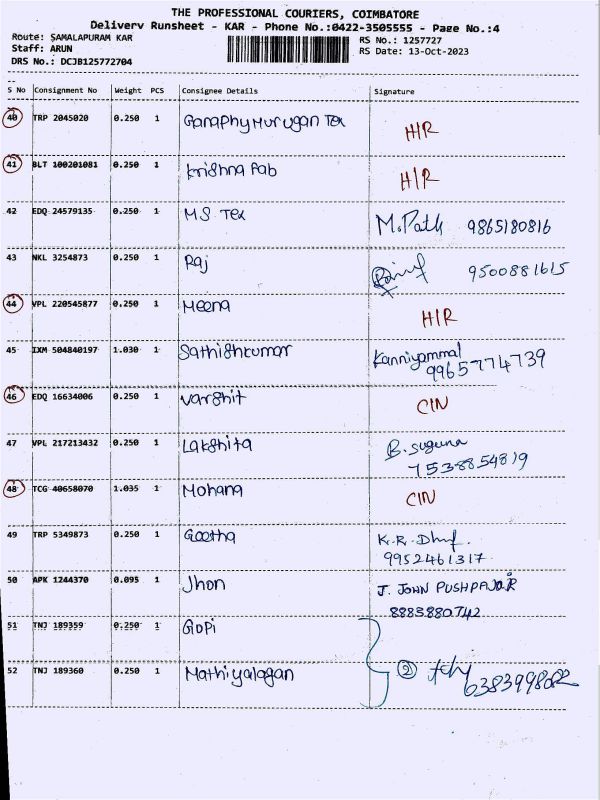 THE PROFESSIONAL COURIERS, COIMBATORE
Delivery Runsheet - KAR - Phone No.:0422-3505555 - Page No.:4
Route: SAMALAPURAM KAR
Staff: ARUN
DRS No.: DCJB125772704
RS No.: 1257727
RS Date: 13-Oct-2023
S No Consignment No Weight PCS Consignee Details Signature
40 TRP 2045020 0.250 1 GanaphyMurugan Tex H/R
41 BLT 100201081 0.250 1 Krishna Fab H/R
42 EDQ 24579135 0.250 1 MS Tex M.Path 9865180816
43 NKL 3254873 0.250 1 Raj 9500881615
44 VPL 220545877 0.250 1 Meena H/R
45 IXM 504840197 1.030 1 Sathishkumar Kanniyammal
9965774739
46 EDQ 16634006 0.250 1 Varshit CIN
47 VPL 217213432 0.250 1 Lakshita B. Suguna
7538854819
48 TCG 40658070 1.035 1 Mohana CIN
49 TRP 5349873 0.250 1 Geetha K.R.
9952461317
50 APK 1244370 0.095 1 Jhon J. JOHN
8883880742
51 TNJ 189359 0.250 1 Gopi
52 TNJ 189360 0.250 1 Mathiyalagan 2